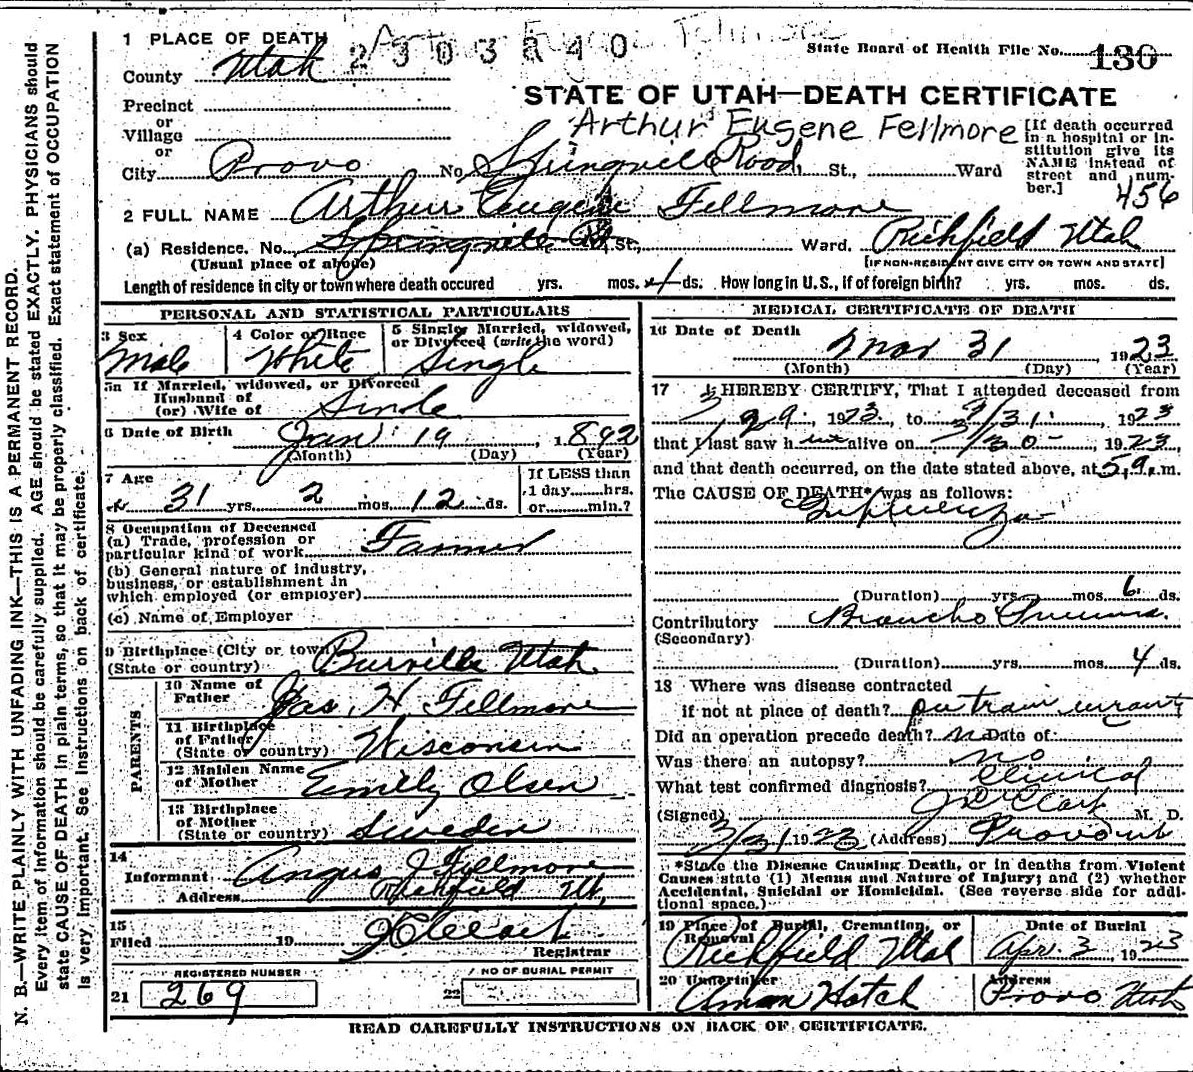 1 PLACE OF DEATH
2303240
State Board of Health File No. 130
County Utah
STATE OF UTAH—DEATH CERTIFICATE
Precinct
or
Village
or
Arthur Eugene Fellmore
[If death occurred in a hospital or institution give its NAME instead of street and number.]
City Provo No. Springville Road, St., Ward
456
2 FULL NAME Arthur Eugene Fellmore
(a) Residence. No. Springville Rd St., Ward. Richfield Utah
(Usual place of abode) [IF NON-RESIDENT GIVE CITY OR TOWN AND STATE]
Length of residence in city or town where death occured yrs. mos. 4 ds. How long in U. S., if of foreign birth? yrs. mos. ds.
PERSONAL AND STATISTICAL PARTICULARS
3 Sex
Male
4 Color or Race
White
5 Single, Married, widowed, or Divorced (write the word)
Single
5a If Married, widowed, or Divorced
Husband of
(or) Wife of Single
6 Date of Birth Jan 19, 1892
(Month) (Day) (Year)
7 Age
31 yrs. 2 mos. 12 ds.
If LESS than
1 day hrs.
or min.?
8 Occupation of Deceased
(a) Trade, profession or
particular kind of work Farmer
(b) General nature of industry,
business, or establishment in
which employed (or employer)
(c) Name of Employer
9 Birthplace (City or town)
(State or country) Burville Utah
PARENTS
10 Name of
Father Jas. H. Fellmore
11 Birthplace
of Father
(State or country) Wisconsin
12 Maiden Name
of Mother Emilly Olsen
13 Birthplace
of Mother
(State or country) Sweden
14
Informant Angus J Fellmore
Address Richfield Ut,
15
Filed 19 J C Clark
Registrar
REGISTERED NUMBER
21 269
NO OF BURIAL PERMIT
22
MEDICAL CERTIFICATE OF DEATH
16 Date of Death
Mar 31 1923
(Month) (Day) (Year)
17 I HEREBY CERTIFY, That I attended deceased from
3/29, 1923, to 3/31, 1923
that I last saw him alive on 3/30-, 1923,
and that death occurred, on the date stated above, at 5 9. m.
The CAUSE OF DEATH* was as follows:
Influenza
(Duration) yrs. mos 6 ds.
Contributory Broncho Pneumo.
(Secondary)
(Duration) yrs. mos. 4 ds.
18 Where was disease contracted
if not at place of death?
Did an operation precede death? no Date of:
Was there an autopsy? no
What test confirmed diagnosis? Clinical
(Signed) J C Clark M. D.
3/31 1923 (Address) Provo Ut
*State the Disease Causing Death, or in deaths from Violent
Causes state (1) Means and Nature of Injury; and (2) whether
Accidental, Suicidal or Homicidal. (See reverse side for addi-
tional space.)
19 Place of Burial, Cremation, or
Removal
Richfield Utah
Date of Burial
Apr 3, 1923
20 Undertaker
Hatch
Address
Provo Utah
READ CAREFULLY INSTRUCTIONS ON BACK OF CERTIFICATE.
N. B.—WRITE PLAINLY WITH UNFADING INK—THIS IS A PERMANENT RECORD.
Every item of information should be carefully supplied. AGE should be stated EXACTLY. PHYSICIANS should
state CAUSE OF DEATH in plain terms, so that it may be properly classified. Exact statement of OCCUPATION
is very important. See instructions on back of certificate.